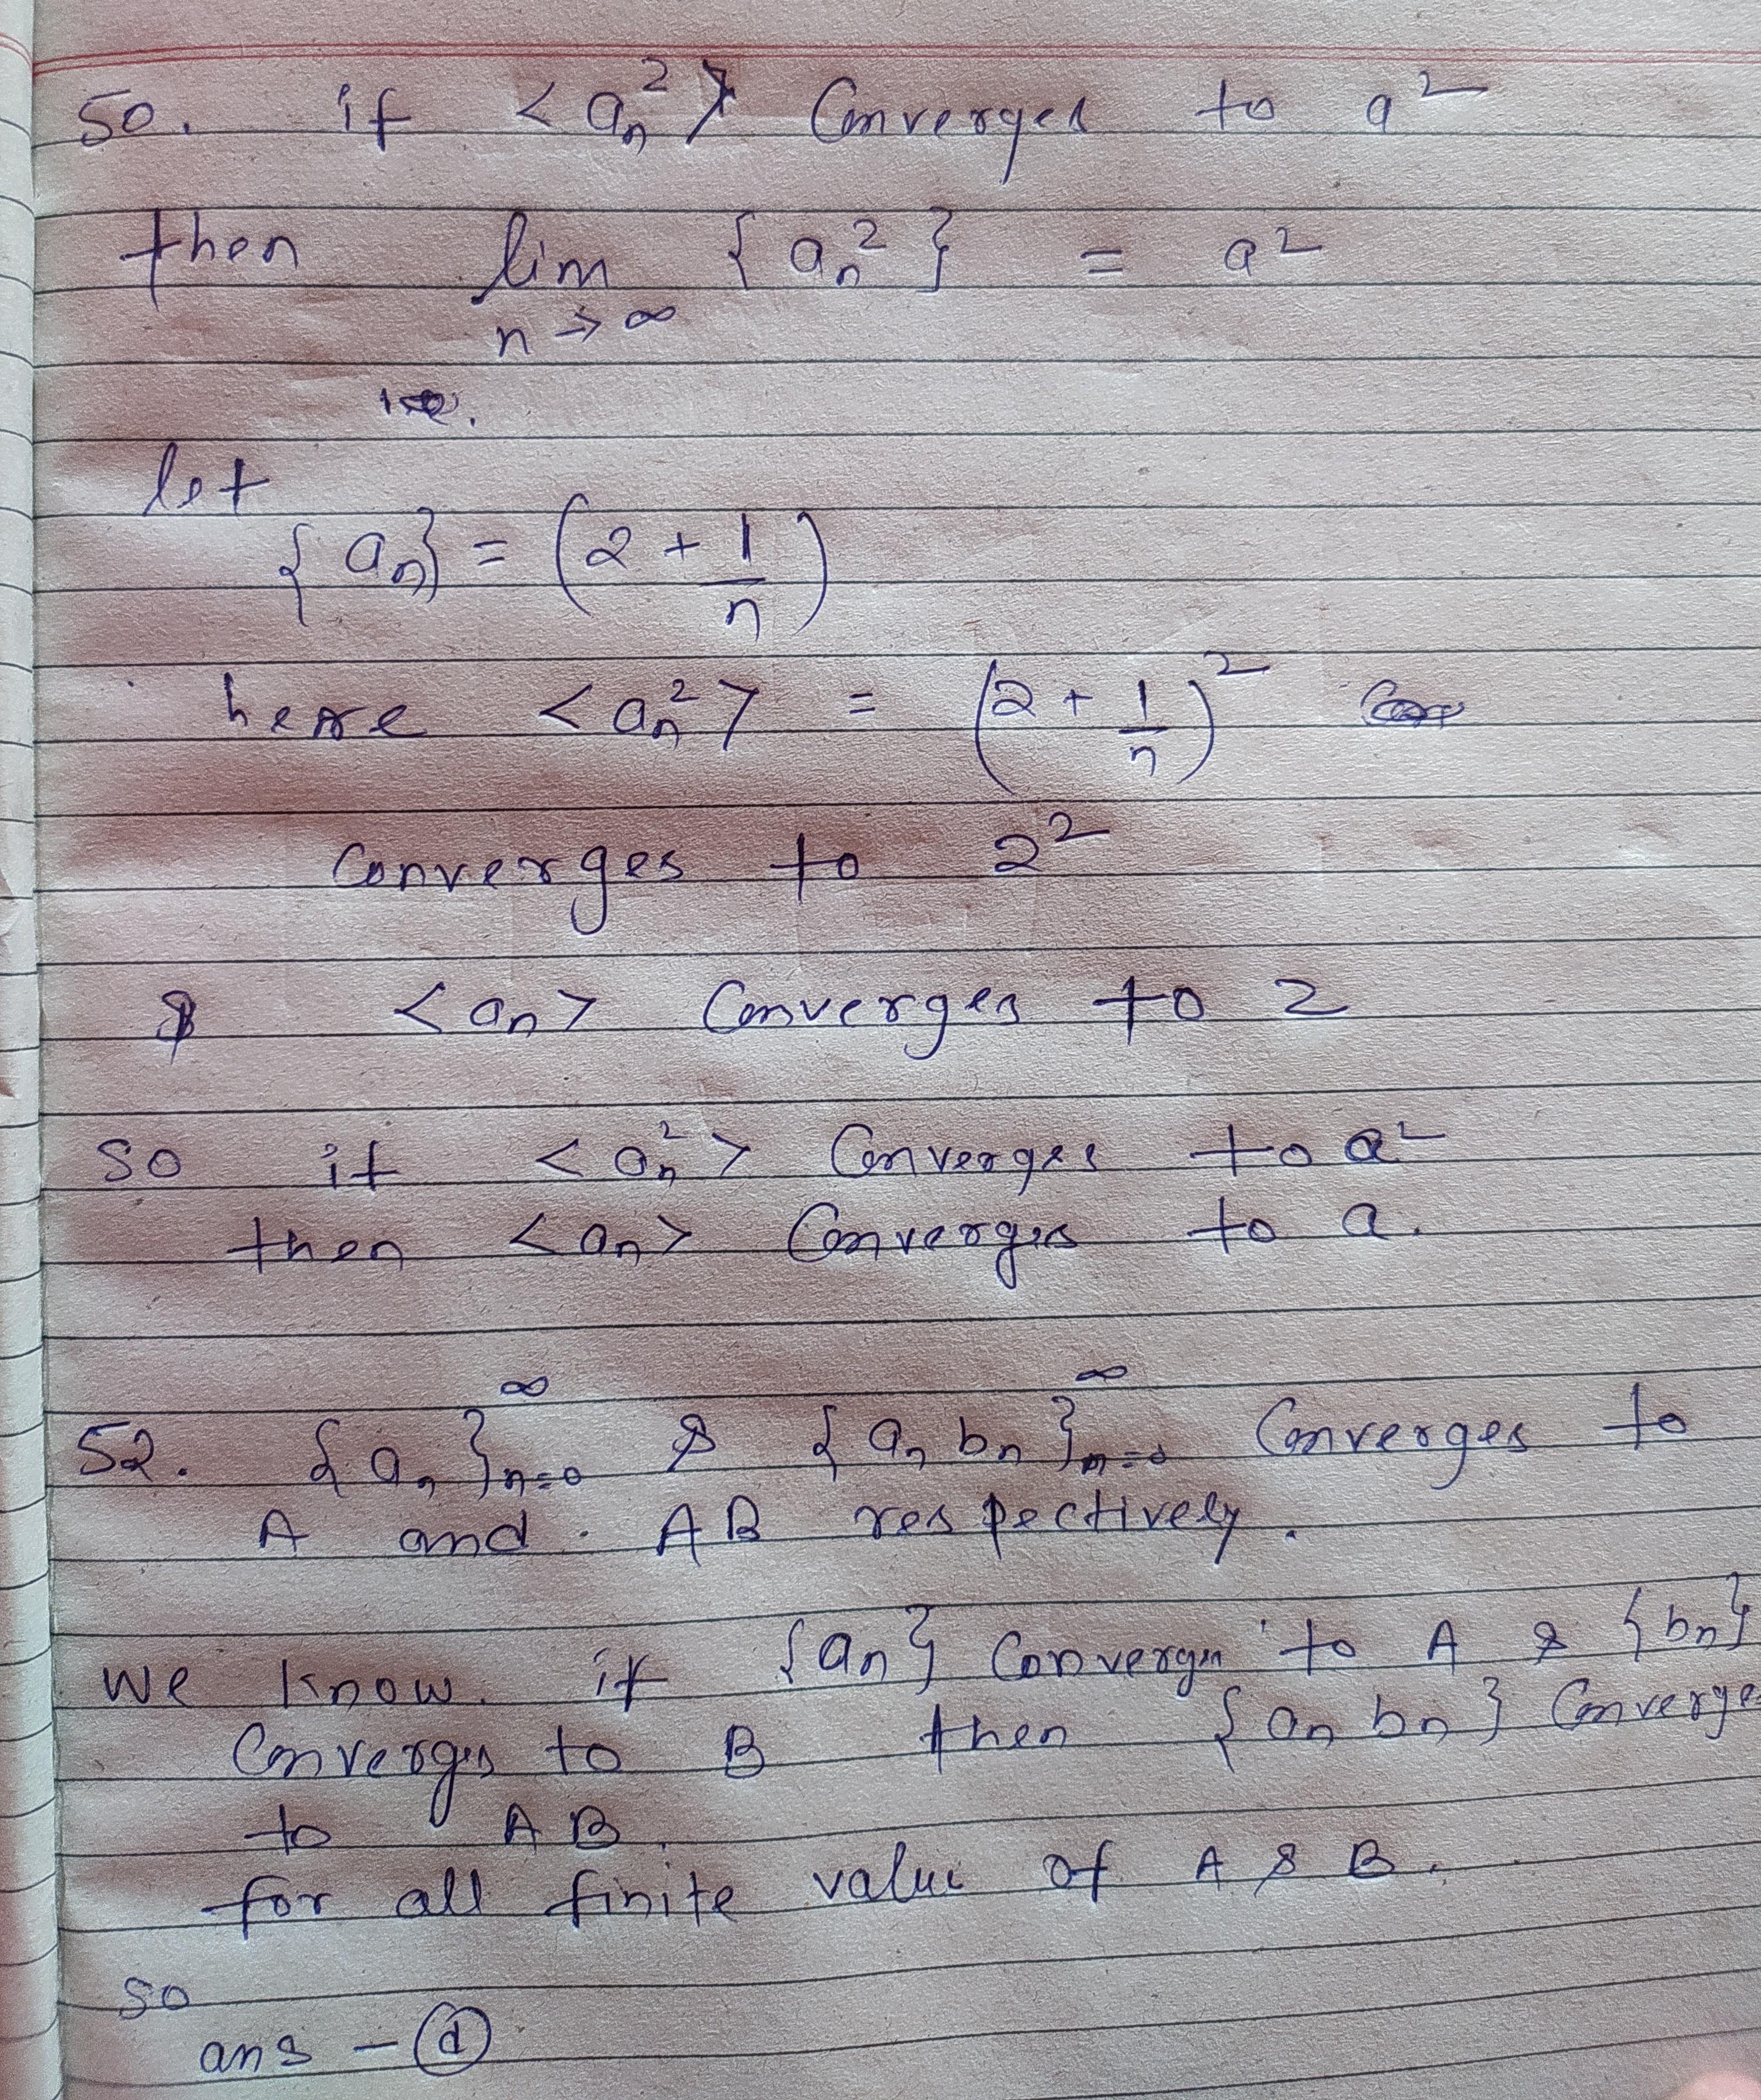 50. if <aₙ²> Converges to a²
then lim {aₙ²} = a²
n→∞
let
{aₙ} = (2 + 1/n)
here <aₙ²> = (2 + 1/n)²
Converges to 2²
& <aₙ> Converges to 2
so if <aₙ²> Converges to a²
then <aₙ> Converges to a.
52. {aₙ}ₙ₌₀^∞ & {aₙ bₙ}ₙ₌₀^∞ Converges to
A and AB respectively.
we know if {aₙ} Converges to A & {bₙ}
Converges to B then {aₙ bₙ} Converge
to AB.
for all finite value of A & B.
so
ans - (d)